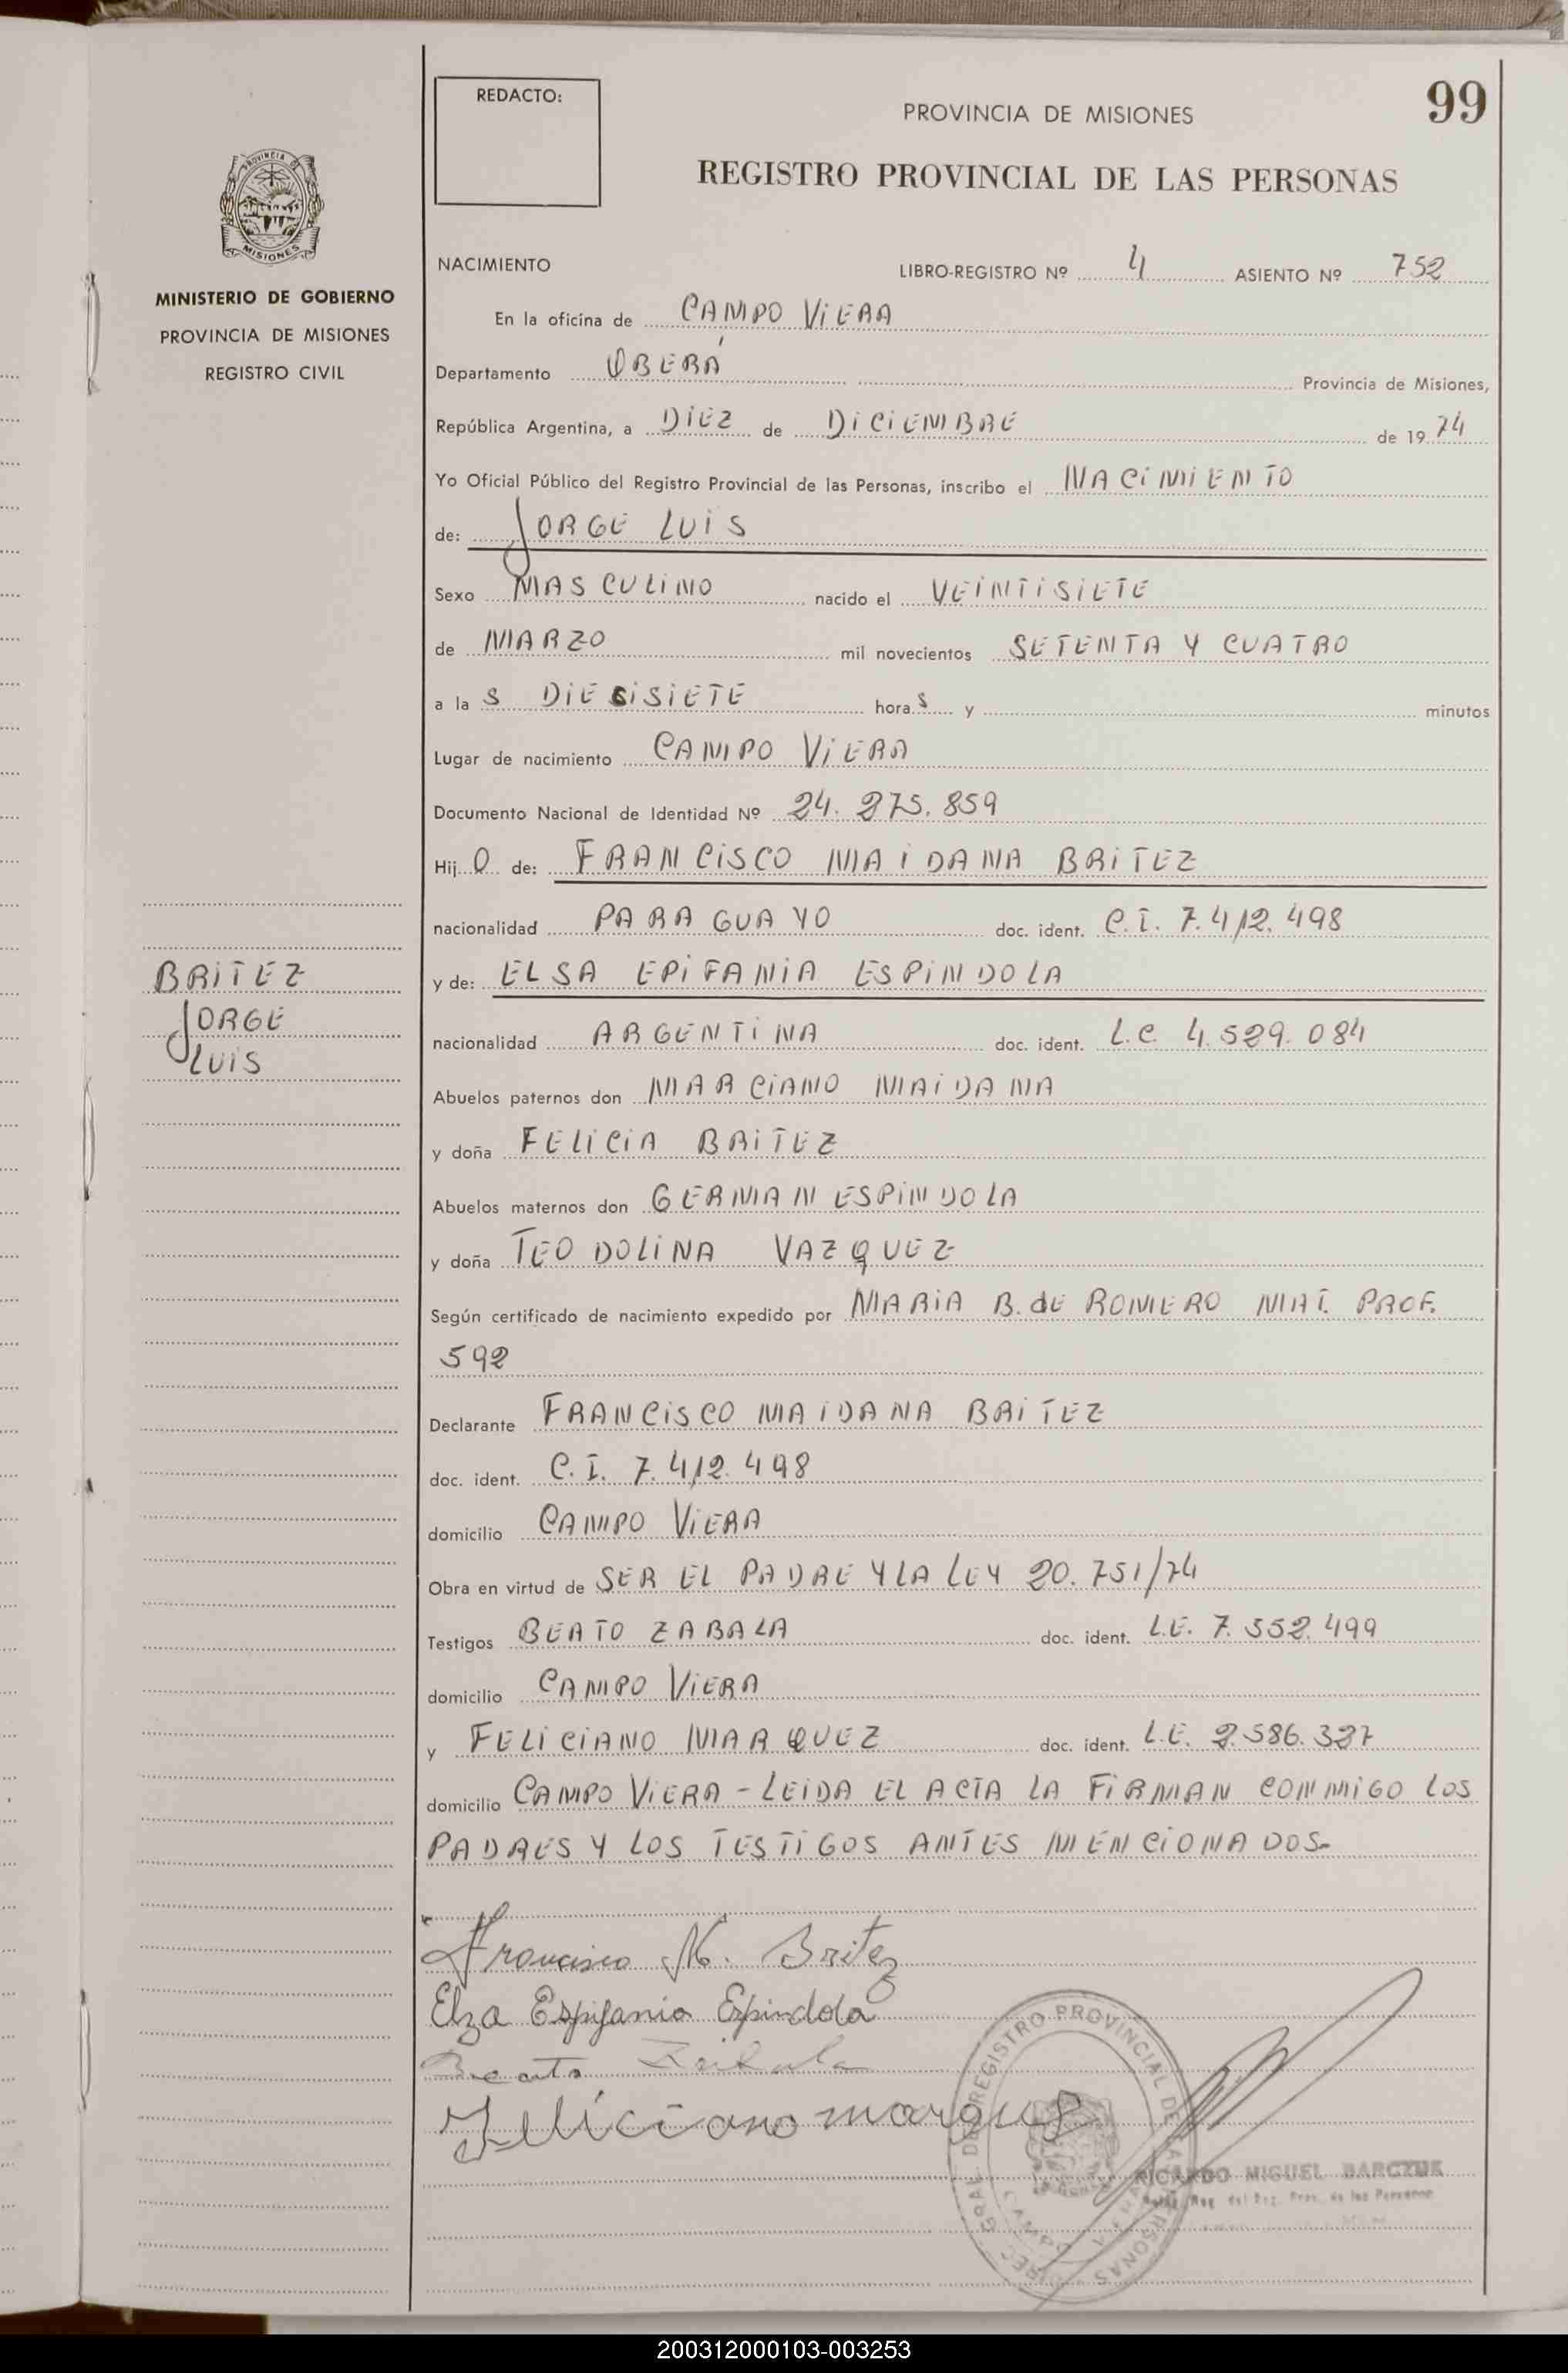 REDACTO:
PROVINCIA DE MISIONES
99
REGISTRO PROVINCIAL DE LAS PERSONAS
PROVINCIA DE
MISIONES
MINISTERIO DE GOBIERNO
PROVINCIA DE MISIONES
REGISTRO CIVIL
NACIMIENTO LIBRO-REGISTRO Nº 4 ASIENTO Nº 752
En la oficina de CAMPO VIERA
Departamento OBERÁ Provincia de Misiones,
República Argentina, a DIEZ de DICIEMBRE de 19 74
Yo Oficial Público del Registro Provincial de las Personas, inscribo el NACIMIENTO
de: JORGE LUIS
Sexo MASCULINO nacido el VEINTISIETE
de MARZO mil novecientos SETENTA Y CUATRO
a la S DIESISIETE hora S y minutos
Lugar de nacimiento CAMPO VIERA
Documento Nacional de Identidad Nº 24.275.859
Hij O de: FRANCISCO MAIDANA BRITEZ
nacionalidad PARAGUAYO doc. ident. C.I. 7.412.498
BRITEZ
JORGE
LUIS
y de: ELSA EPIFANIA ESPINDOLA
nacionalidad ARGENTINA doc. ident. L.C. 4.529.084
Abuelos paternos don MARCIANO MAIDANA
y doña FELICIA BRITEZ
Abuelos maternos don GERMAN ESPINDOLA
y doña TEODOLINA VAZQUEZ
Según certificado de nacimiento expedido por MARIA B. de ROMERO MAT. PROF.
592
Declarante FRANCISCO MAIDANA BRITEZ
doc. ident. C.I. 7.412.498
domicilio CAMPO VIERA
Obra en virtud de SER EL PADRE Y LA LEY 20.751/74
Testigos BEATO ZABALA doc. ident. L.E. 7.552.499
domicilio CAMPO VIERA
y FELICIANO MARQUEZ doc. ident. L.E. 2.586.327
domicilio CAMPO VIERA - LEIDA EL ACTA LA FIRMAN CONMIGO LOS
PADRES Y LOS TESTIGOS ANTES MENCIONADOS-
Francisco M. Britez
Elza Espifania Espindola
Beato
Feliciano marques
DIREC. GRAL. DEL REGISTRO PROVINCIAL DE LAS PERSONAS
RICARDO MIGUEL BARCZUK
200312000103-003253